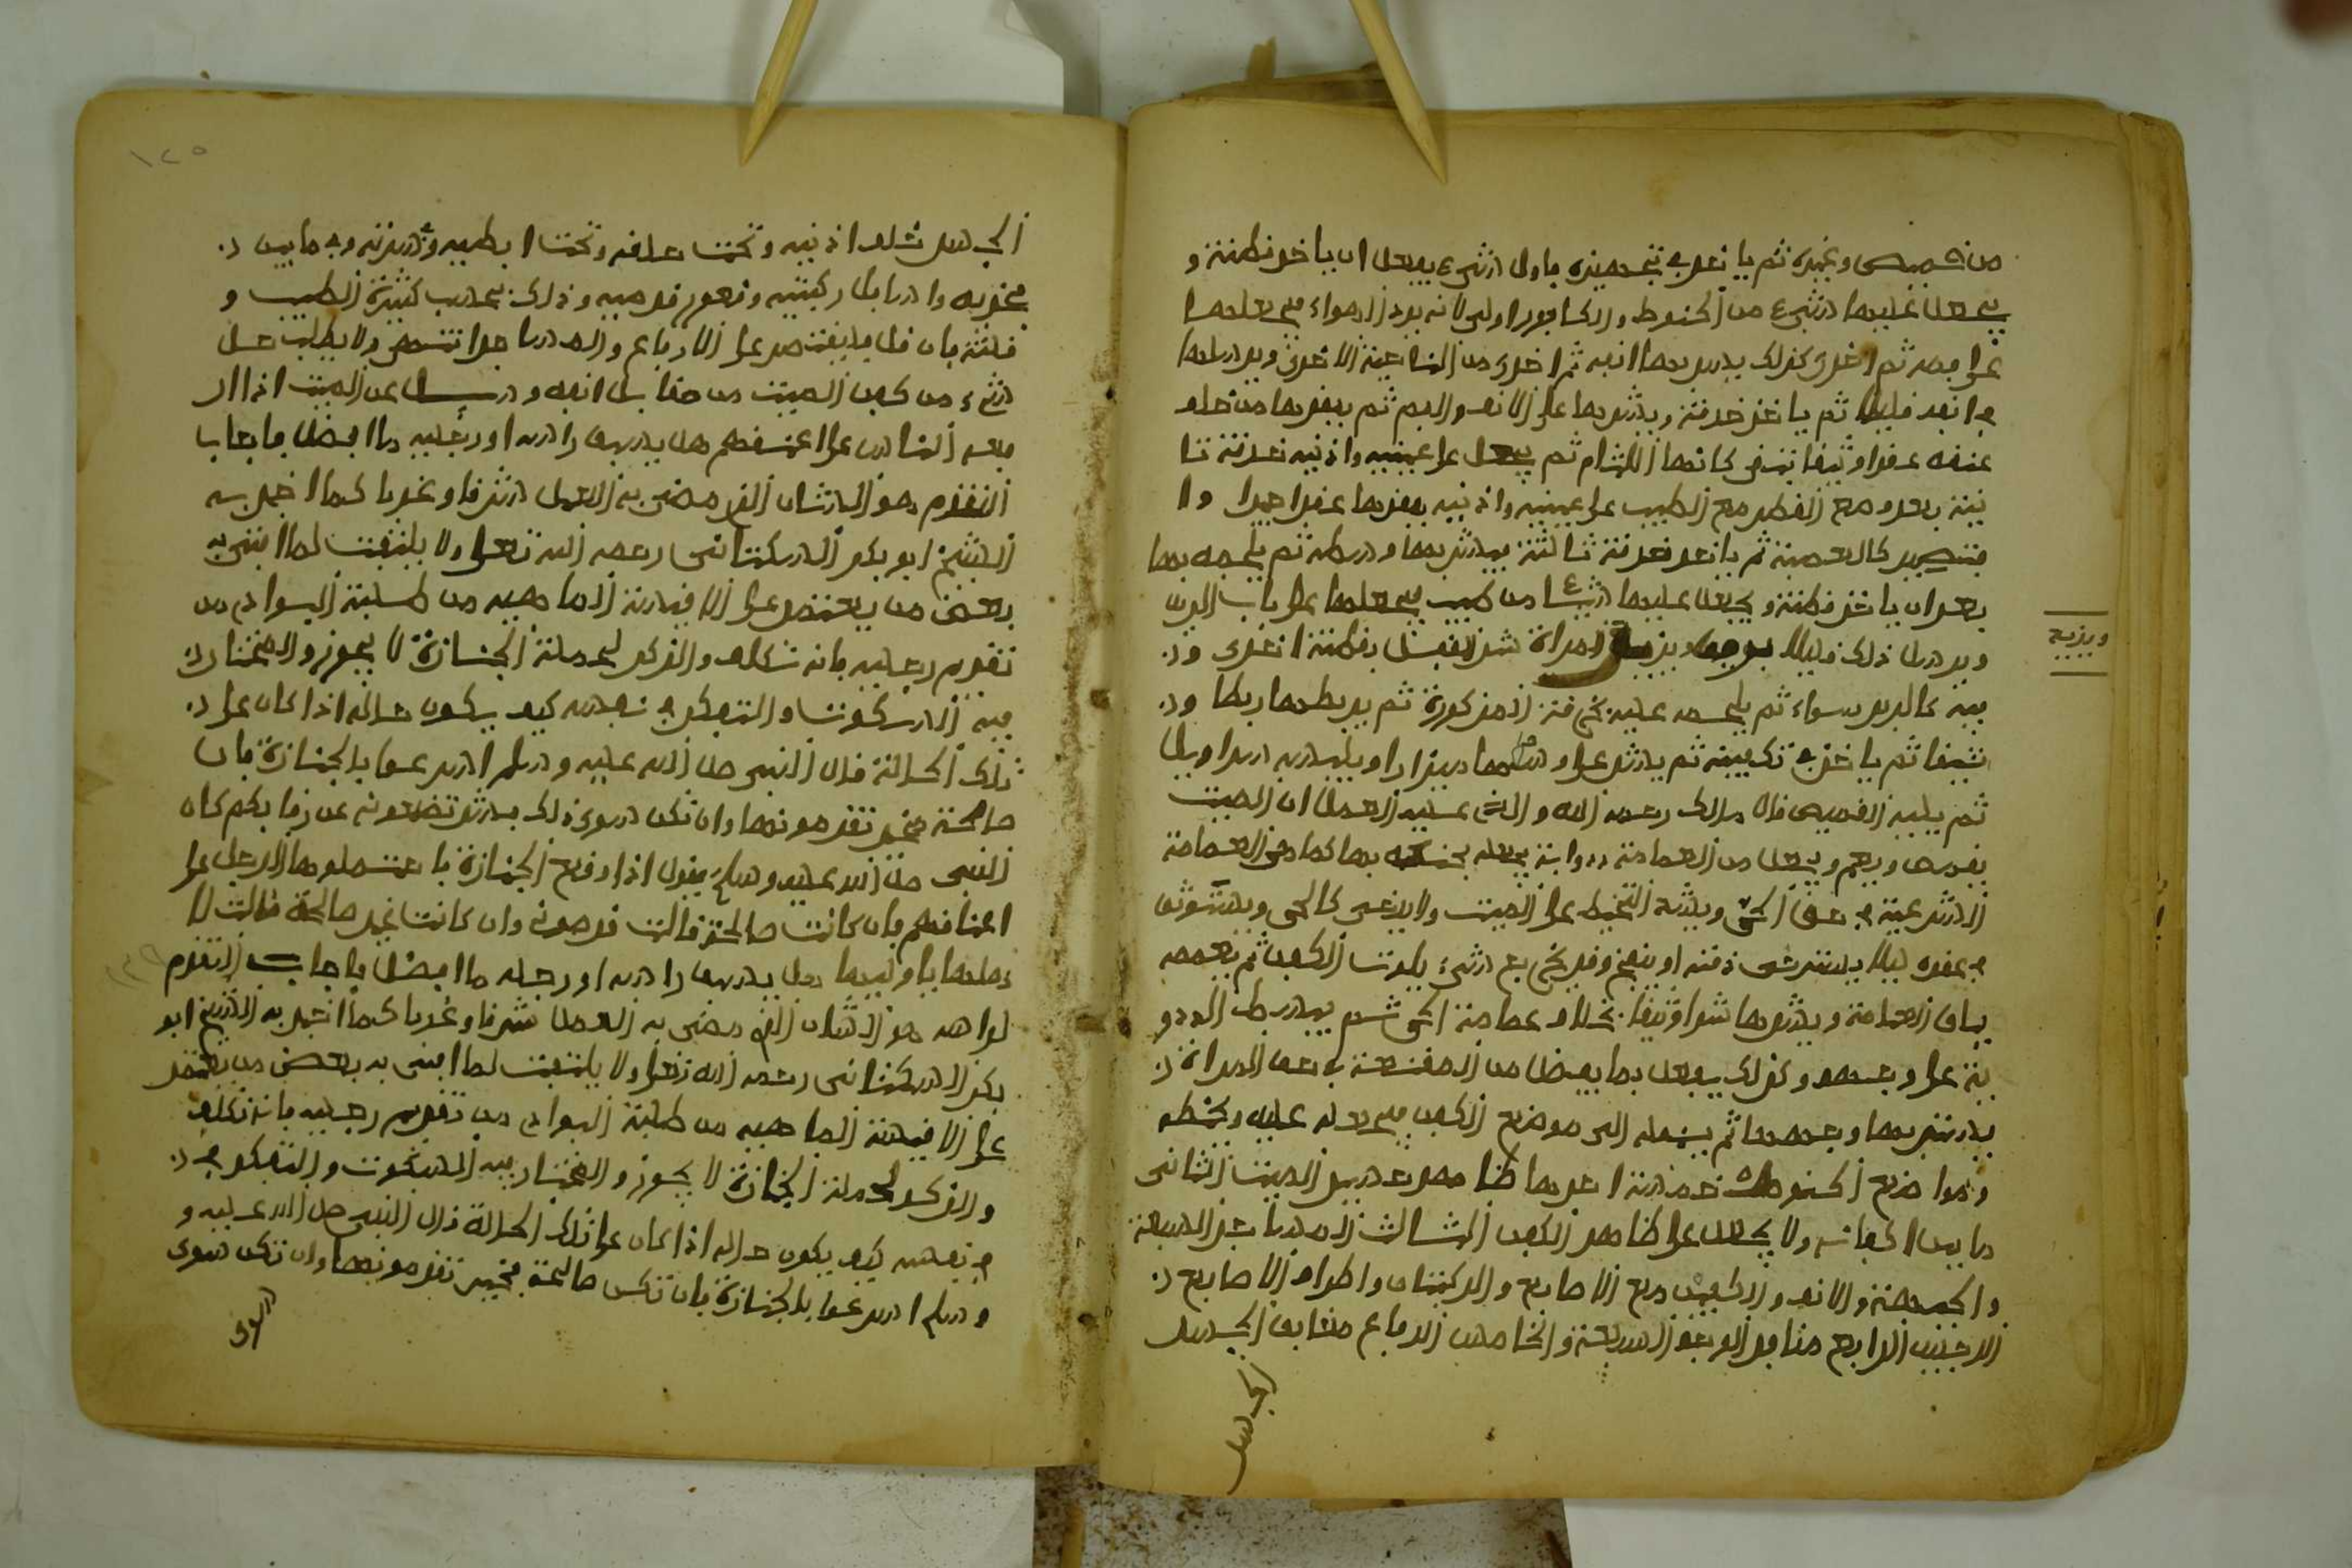 من قميص وغيره ثم ياخذ في تجهيزه فاول شيء يفعل ان ياخذ قطنة و
يجعل عليها شيء من الحنوط والكافور اولى لانه يرد الهواء فيجعلها
على فمه ثم اخرى كذلك يسد بها انفه ثم اخرى من الناحية الاخرى ويرسلها
في انفه قليلا ثم ياخذ خرقة ويشدها على الانف والفم ثم يعقدها من خلف
عنقه عقدا وثيقا تبقى كانها اللثام ثم يجعل على عينيه واذنيه خرقة ثا
نية بعد وضع القطن مع الطيب على عينيه واذنيه يعقدها عقدا جيدا
فتصير كالعصابة ثم ياخذ خرقة ثالثة فيشد بها وسطه ثم يلجمه بها
بعد ان ياخذ قطنة ويجعل عليها شيئا من طيب فيجعلها على باب الدبر
ويرسل ذلك قليلا ويزيد المراة شد القبل بقطنة اخرى
فيه كالدبر سواء ثم يلجمه عليه بخرقة المذكورة ثم يربطها ربطا و
ثيقا ثم ياخذ في تكفينه ثم يشد على وسطها ميزرا او يلبسه سراويل
ثم يلبسه القميص قال مالك رحمه الله والذي عليه العمل ان الميت
يقمص ويعمم ويجعل من العمامة ذوابة يجعله بحنكه بها كما هي العمامة
الشرعية في حق الحي ويشد التحنيك على الميت ولا يرخى كالحي ويستوثق
في عقده ليلا يسترخى ذقنه او ينفتح وقد يخرج شيء يلوث الكفن ثم يعممه
بباقي العمامة ويشدها شدا وثيقا بخلاف عمامة الحي ثم يبسط الذو
بة على وجهه وكذلك يفعل بما يفضل من المقنعة في حق المراة
يستر بها وجهها ثم ينقله الى موضع الكفن فيجعله عليه ويحنطه
ومواضع الحنوط خمسة احدها ظاهر جسد الميت الثاني
ما بين اكفانه ولا يجعل على ظاهر الكفن الثالث المساجد السبعة
والجبهة والانف والكفين مع الاصابع والركبتان واطراف الاصابع
الرجلين الرابع منافذ الوجه السبعة والخامس الارفاغ مغابن الجسد
الجسد
ويزيد
الجسد خلف اذنيه وتحت حلقه وتحت ابطيه وسرته وما بين
فخذيه واسافل ركبتيه وقعر قدميه وذلك بحسب كثرة الطيب و
قلته فان قل فليقتصر على الارفاغ والمساجد انتهى ولا يطلب حل
شيء من كفن الميت من مقابل انفه وسئل عن الميت اذا
رفعه الناس على اعناقهم هل يسبق راسه او رجليه ما افضل فاجاب
التقدم هو الشان الذي مضى به العمل شرقا وغربا كما اخبر به
الشيخ ابو بكر السكتاني رحمه الله تعالى ولا يلتفت لما افتى به
بعض من يعتمد على الاقيسة الماضية من طلبة البوادي من
تقديم رجليه فانه تكلف والذكر لحملة الجنازة لا يجوز والمختار
فيه السكوت والتفكر في نفسه كيف يكون حاله اذا كان على
تلك الحالة قال النبي صلى الله عليه وسلم اسرعوا بالجنازة فان
صالحة فخير تقدمونها وان تكن سوى ذلك فشر تضعونه عن رقابكم كان
النبي صلى الله عليه وسلم يقول اذا وضع الجنازة فاحتملوها الرجل على
اعناقهم فان كانت صالحة قالت قدموني وان كانت غير صالحة قالت لا
هلها يا ويلها هل يسبق راسه او رجله ما افضل فاجاب التقدم
لراسه هو الشان الذي مضى به العمل شرقا وغربا كما اخبر به الشيخ ابو
بكر السكتاني رحمه الله تعالى ولا يلتفت لما افتى به بعض من يعتمد
على الاقيسة الماضية من طلبة البوادي من تقديم رجليه فانه تكلف
والذكر لحملة الجنازة لا يجوز والمختار فيه السكوت والتفكر في
نفسه كيف يكون حاله اذا كان على تلك الحالة قال النبي صلى الله عليه و
وسلم اسرعوا بالجنازة فان تكن صالحة فخير تقدمونها وان تكن سوى
١٢٥